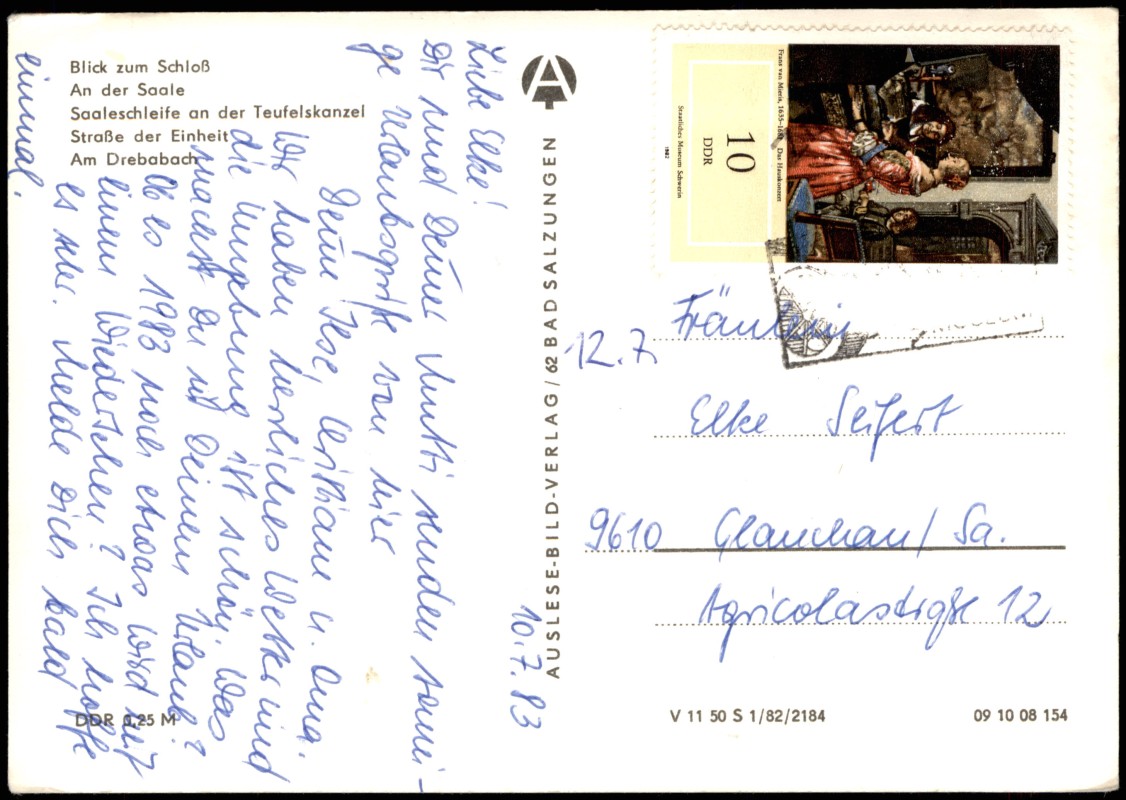 Blick zum Schloß
An der Saale
Saaleschleife an der Teufelskanzel
Straße der Einheit
Am Drebabach
10.7.83
Liebe Elke!
Dir und Deiner Mutti senden sonni-
ge Urlaubsgrüße von hier
Deine Ilse, Christiane u. Oma.
Wir haben herrliches Wetter und
die Umgebung ist schön. Was
machst Du mit Deinem Urlaub?
Ob es 1983 noch etwas wird mit
einem Wiedersehen? Ich hoffe
es sehr. Melde Dich bald
einmal.
DDR 0,25 M
AUSLESE-BILD-VERLAG / 62 BAD SALZUNGEN
Frans van Mieris, 1635-1681 Das Hauskonzert
10
DDR
Staatliches Museum Schwerin
1982
12.7
Fräulein
Elke Seifert
9610 Glauchau/Sa.
Agricolastraße 12
V 11 50 S 1/82/2184
09 10 08 154